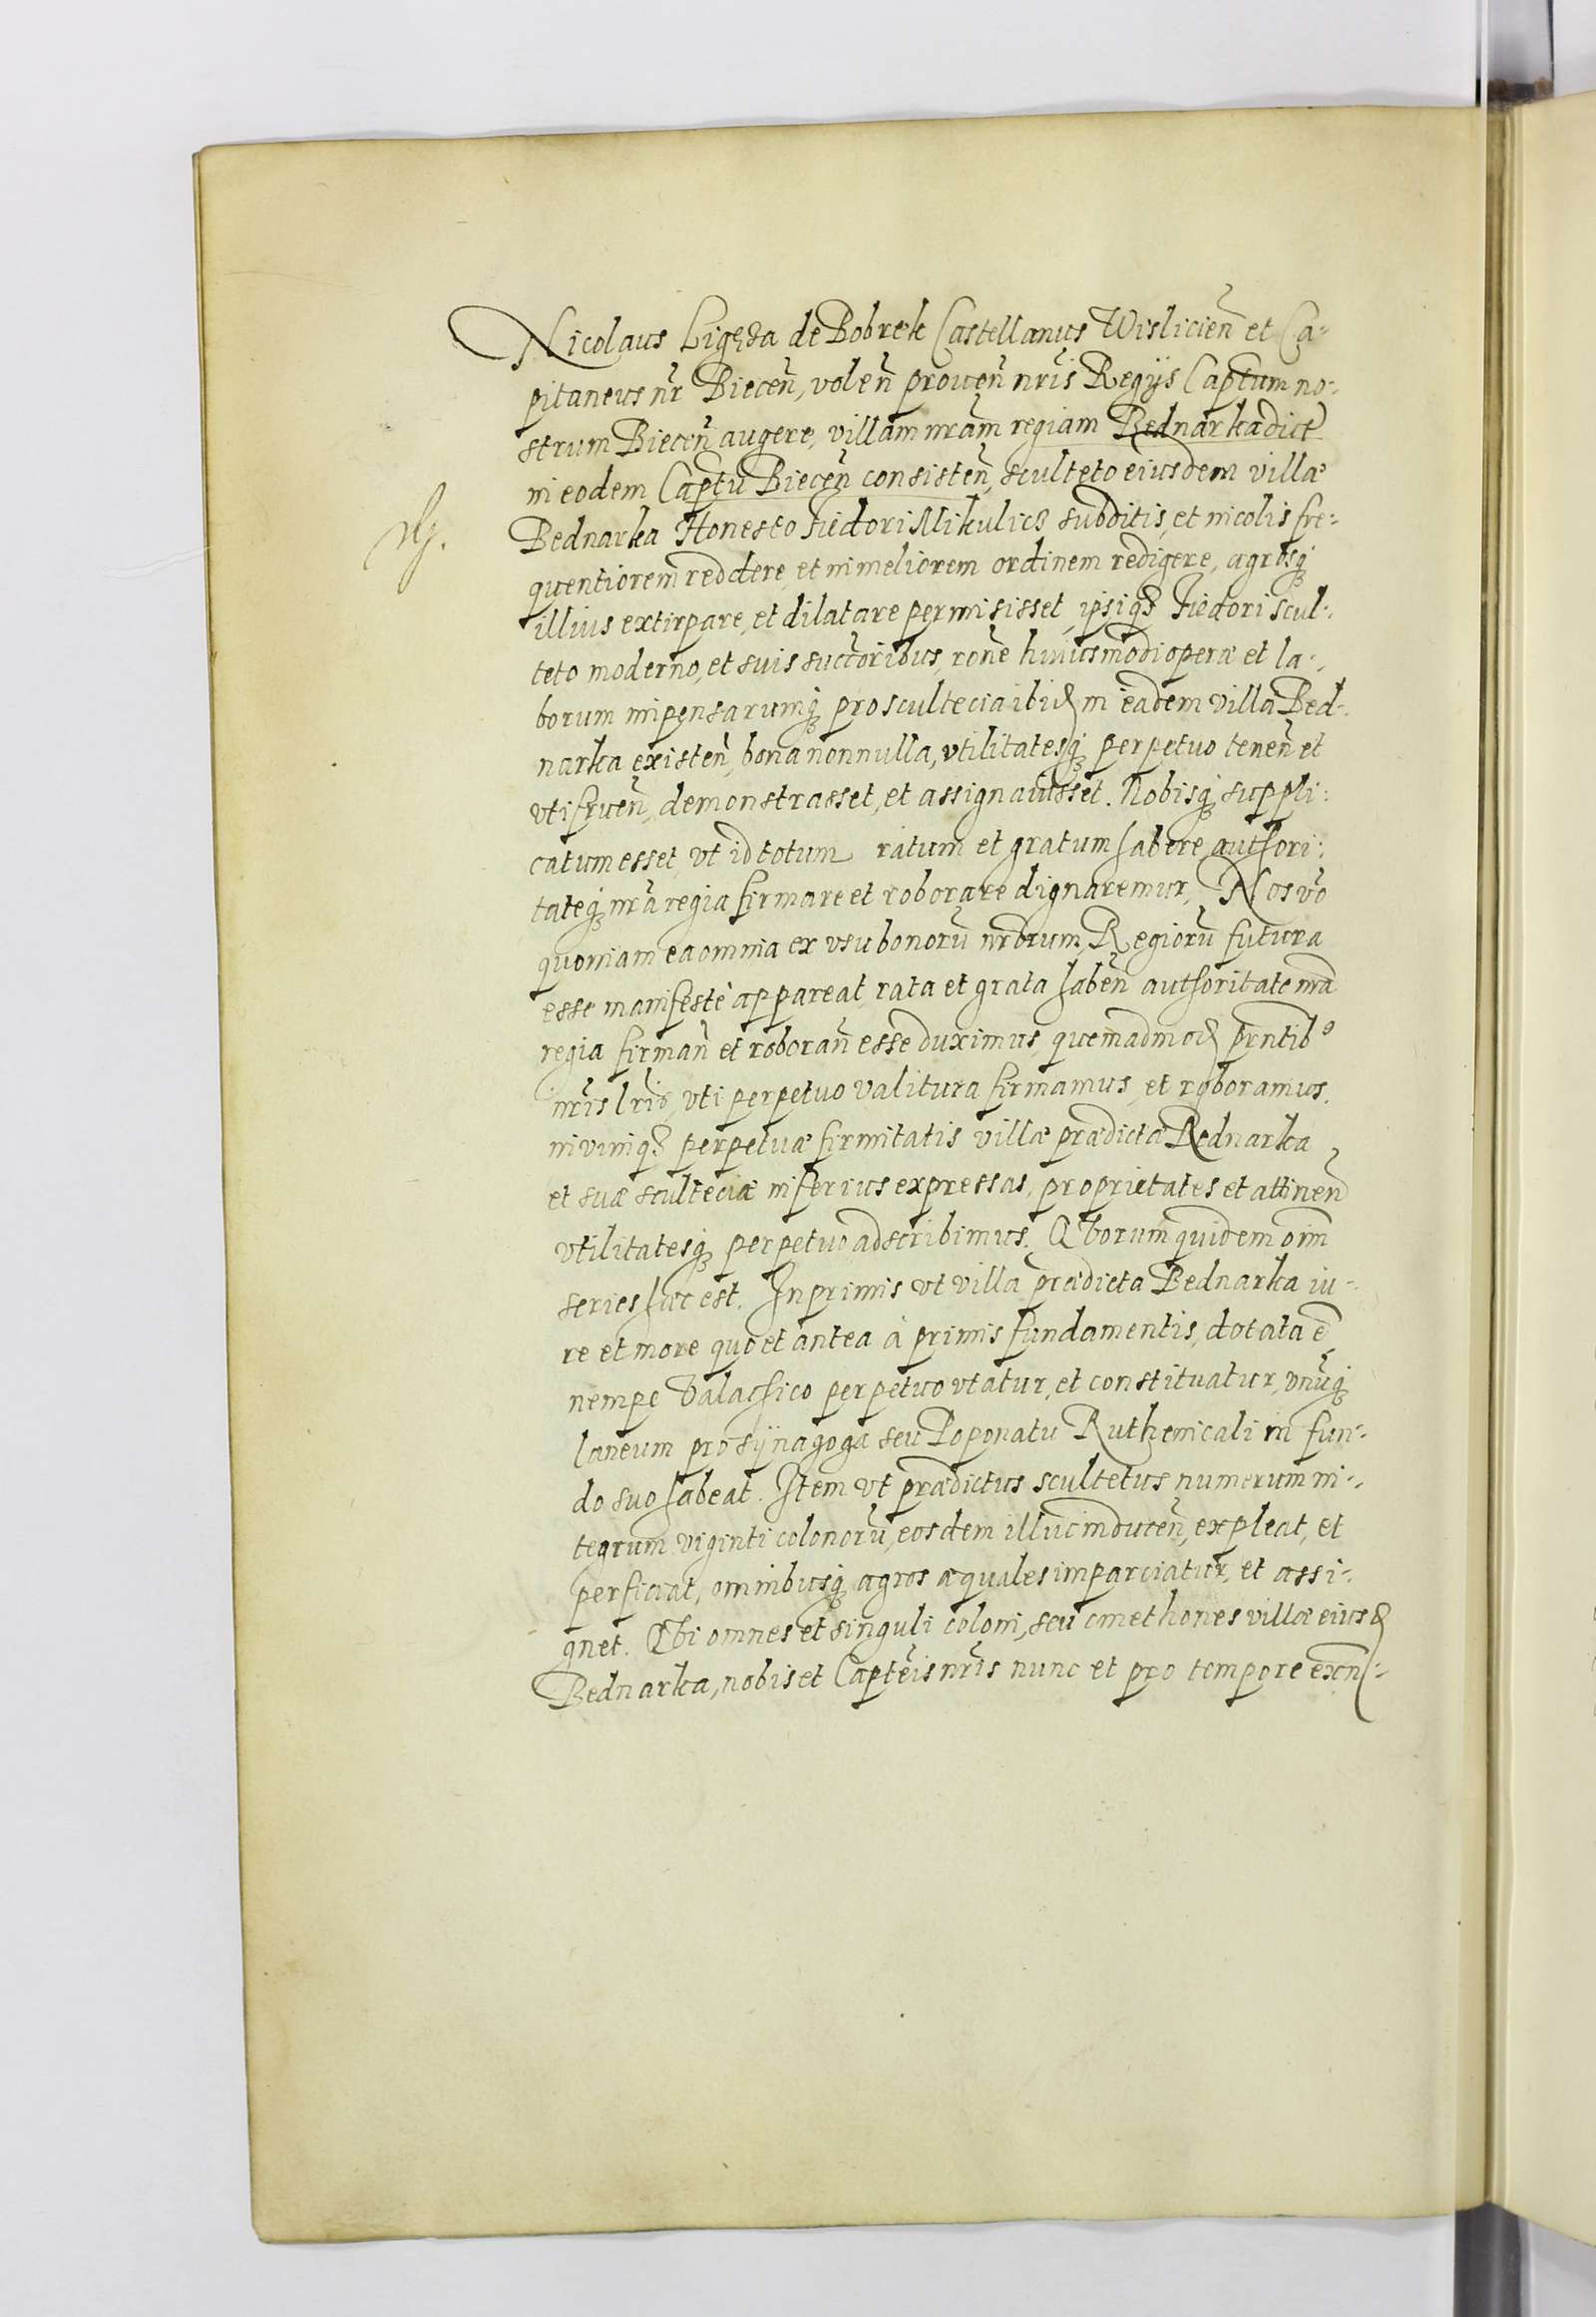 Nicolaus Ligęza de Bobrek Castellanus Wislicień et Ca-
pitaneus nr̃ Biecen̄, volen̄ prouen̄ nrīs Regÿs Capt̄um no-
strum Biecen̄ augere, villam nrām regiam Bednarka dict̄
in eodem Capt̄u Biecen̄ consisten̄, sculteto eiusdem villæ
Bednarka Honesto Fiedori Mikulicz subditis, et incolis fre-
quentiorem reddere, et in meliorem ordinem redigere, agrosq̨
illius extirpare, et dilatare permisisset, ipsiqз Fiedori scul-
teto moderno, et suis succoribus, rone̅ huiusmodi operæ et la-
borum impensarumq̨ pro scultecia ibid̨ in eadem villa Bed-
narka existen̄, bona nonnulla, vtilitatesq̨ perpetuo tenen̄ et
vti fruen̄, demonstrasset, et assignauisset. Nobisq̨ suppli-
catum esset, vt id totum ratum et gratum habere, authori-
tateq̨ nrā regia firmare et roborare dignaremur, Nos vo̅
quoniam ea omnia ex vsu bonorū nrōrum Regiorū futura
esse manifestè appareat, rata et grata haben̄ authoritate nrā
regia firman̄ et roboran̄ esse duximus, quemadmod̨ pr̄ntib⁹
nrīs lrīs, vti perpetuo valitura firmamus, et roboramus.
in vimqз perpetuæ firmitatis villæ prædictæ Bednarka
et suæ sculteciæ inferius expressas, proprietates et attinen̄
vtilitatesq̨ perpetuo adscribimus. Quorum quidem oīm
series hæc est. Inprimis vt villa prædicta Bednarka iu-
re et more quo et antea à primis fundamentis, dotata ē
nempe Valachico perpetuo vtatur, et constituatur, vnūq̨
laneum pro sÿnagoga seu Poponatu Ruthenicali in fun-
do suo habeat. Item vt prædictus scultetus numerum in-
tegrum viginti colonorū, eosdem illuc inducen̄, expleat, et
perficiat, omnibusq̨ agros æquales imparciatur, et assi-
gnet. Qui omnes et singuli coloni, seu cmethones villæ eiusd̨
Bednarka, nobis et Capteīs nrīs nunc et pro tempore exn̄-